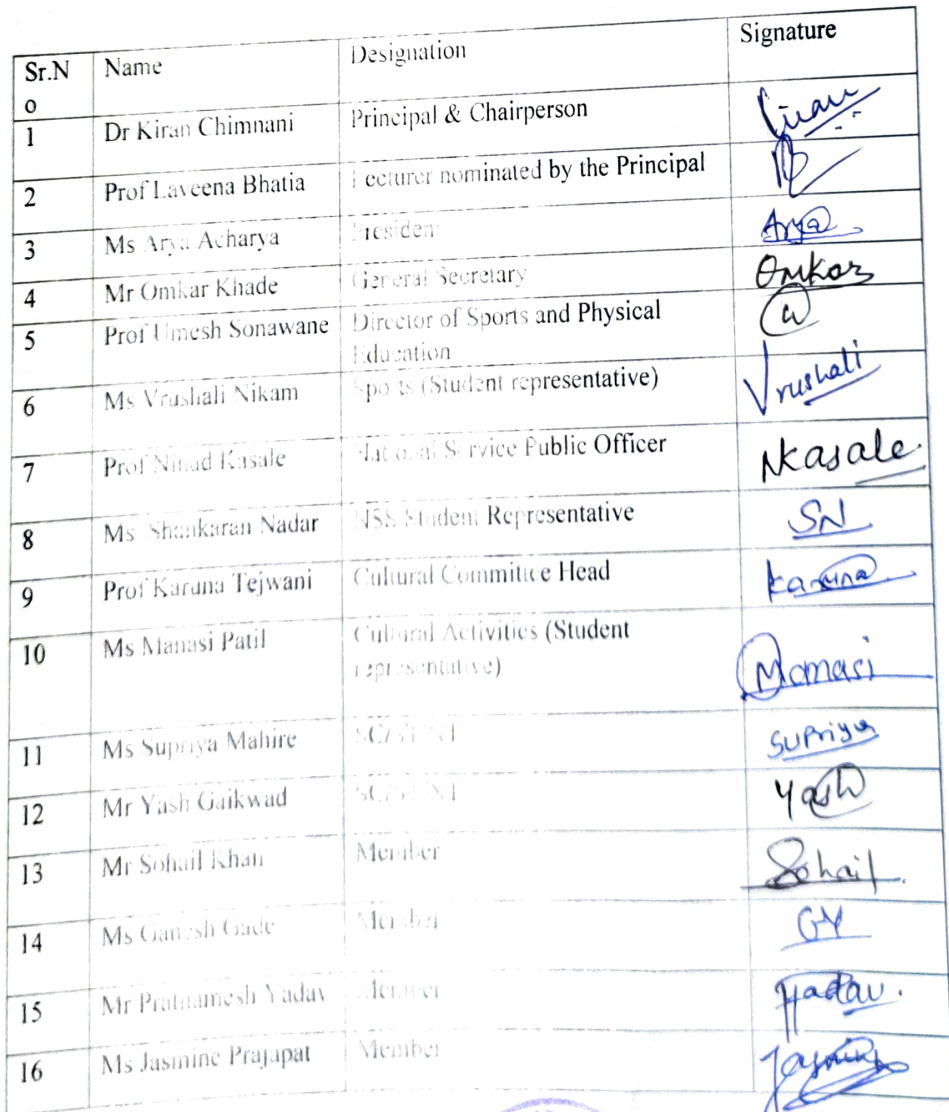 Sr.N
o
Name
Designation
Signature
1
Dr Kiran Chimnani
Principal & Chairperson
Kiran
2
Prof Laveena Bhatia
Lecturer nominated by the Principal
3
Ms Arya Acharya
President
Arya
4
Mr Omkar Khade
General Secretary
Omkar
5
Prof Umesh Sonawane
Director of Sports and Physical
Education
6
Ms Vrushali Nikam
Sports (Student representative)
Vrushali
7
Prof Ninad Kasale
National Service Public Officer
NKasale
8
Ms Shankaran Nadar
NSS Student Representative
SN
9
Prof Karuna Tejwani
Cultural Committee Head
Karuna
10
Ms Manasi Patil
Cultural Activities (Student
representative)
Manasi
11
Ms Supriya Mahire
SC/ST/NT
Supriya
12
Mr Yash Gaikwad
SC/ST/NT
Yash
13
Mr Sohail Khan
Member
Sohail
14
Ms Ganesh Gade
Member
15
Mr Prathamesh Yadav
Member
Yadav.
16
Ms Jasmine Prajapat
Member
Jasmine